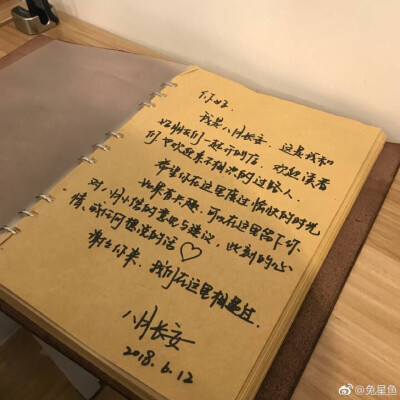 你好.
我是八月长安. 这是我和
好朋友们一起开的店. 欢迎读者
们也欢迎素不相识的过路人.
希望你在这里度过愉快的时光
如果有兴趣, 可以在这里留下你
对八月小店的意见与建议, 此刻的心
情、或任何想说的话♡
谢谢你来, 我们在这里相遇过.
八月长安
2018.6.12
@兔星鱼